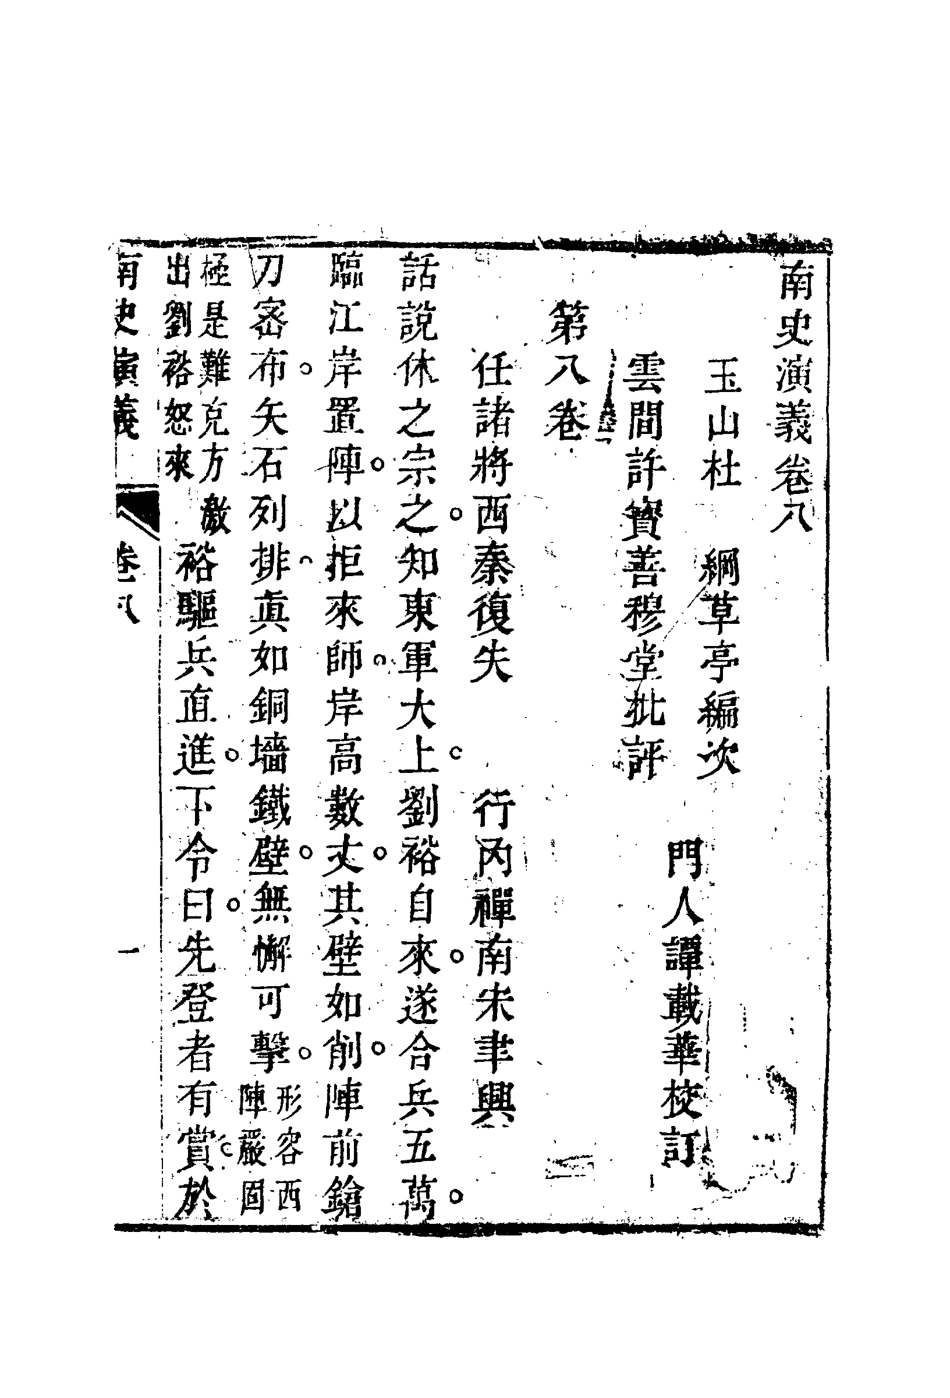 南史演義卷八
玉山杜　綱草亭編次
門人譚載華校訂
雲間許寶善穆堂批評
第八卷
任諸將西秦復失　行內禪南宋聿興
話說休之宗之。知東軍大上。劉裕自來。遂合兵五萬。
臨江岸置陣。以拒來師。岸高數丈。其壁如削。陣前鎗
刀密布。矢石列排。真如銅墻鐵壁。無懈可擊。形容西陣嚴固
極是難克方激出劉裕怒來裕驅兵直進。下令曰。先登者有賞。於
南史演義　卷八　一